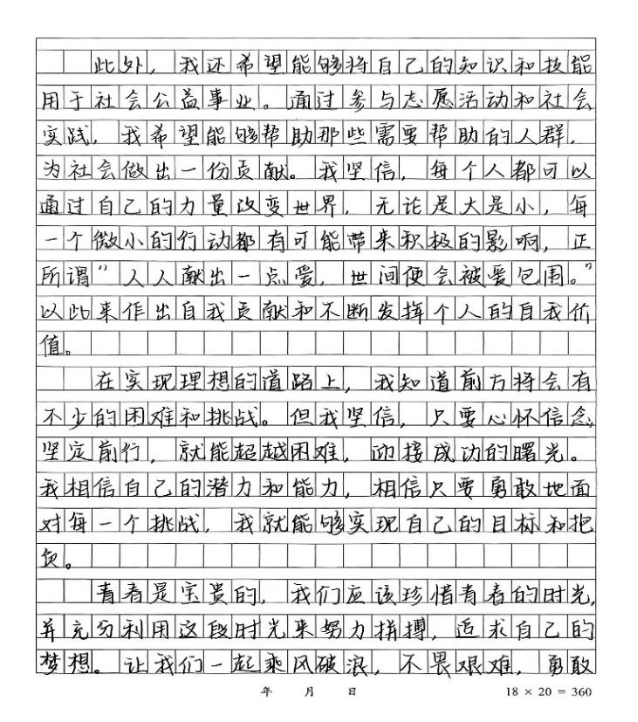 此外，我还希望能够将自己的知识和技能
用于社会公益事业。通过参与志愿活动和社会
实践，我希望能够帮助那些需要帮助的人群，
为社会做出一份贡献。我坚信，每个人都可以
通过自己的力量改变世界，无论是大是小，每
一个微小的行动都有可能带来积极的影响，正
所谓“人人献出一点爱，世间便会被爱包围。”
以此来作出自我贡献和不断发挥个人的自我价
值。
在实现理想的道路上，我知道前方将会有
不少的困难和挑战。但我坚信，只要心怀信念，
坚定前行，就能超越困难，迎接成功的曙光。
我相信自己的潜力和能力，相信只要勇敢地面
对每一个挑战，我就能够实现自己的目标和抱
负。
青春是宝贵的，我们应该珍惜青春的时光，
并充分利用这段时光来努力拼搏，追求自己的
梦想。让我们一起乘风破浪，不畏艰难，勇敢
年 月 日 18 × 20 = 360